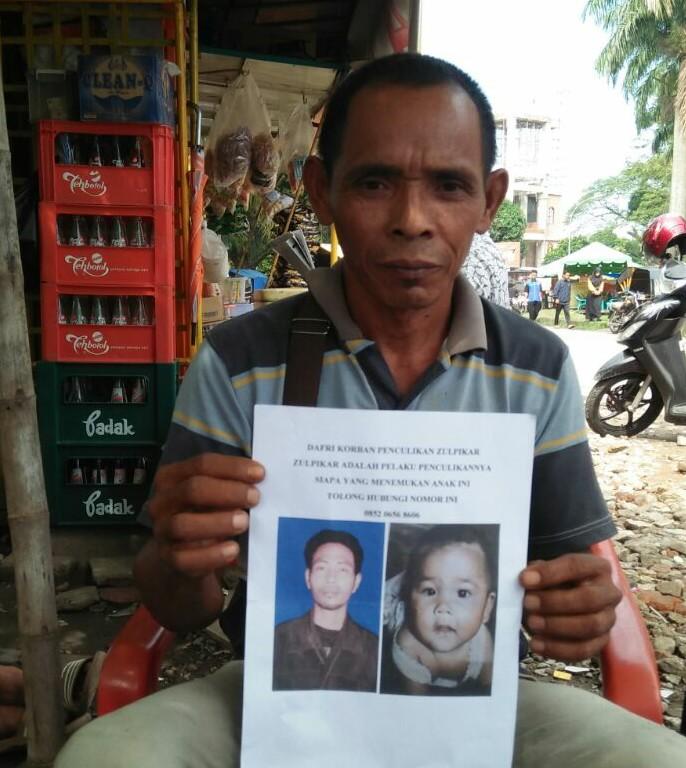 CLEAN-Q
Tehbotol
Tehbotol
Tehbotol
Badak
Badak
DAFRI KORBAN PENCULIKAN ZULPIKAR
ZULPIKAR ADALAH PELAKU PENCULIKANNYA
SIAPA YANG MENEMUKAN ANAK INI
TOLONG HUBUNGI NOMOR INI
0852 0656 8606